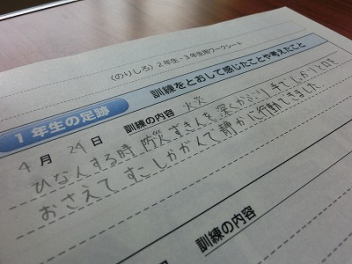 (のりしろ) 2年生・3年生用ワークシート
訓練をとおして感じたことや考えたこと
1年生の足跡
4月24日 訓練の内容 火災
ひなんする時防災ずきんを深くかぶり手でしっかりと口を
おさえてすこしかがんで静かに行動できました
月 日 訓練の内容